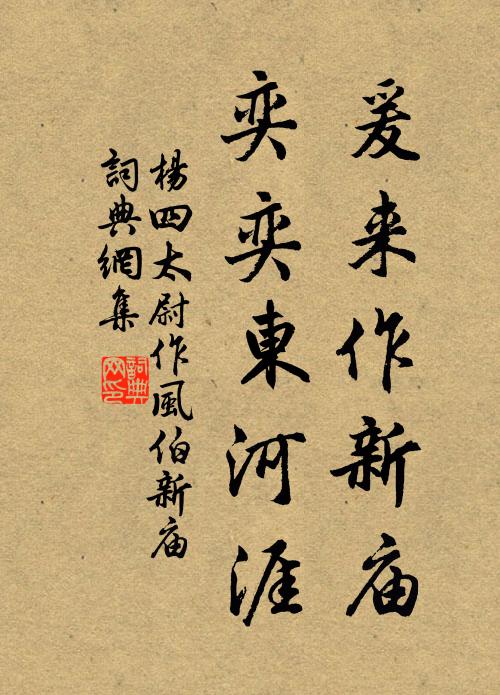 爰来作新庙
奕奕東河涯
楊四太尉作風伯新庙
詞典網集
詞典網印